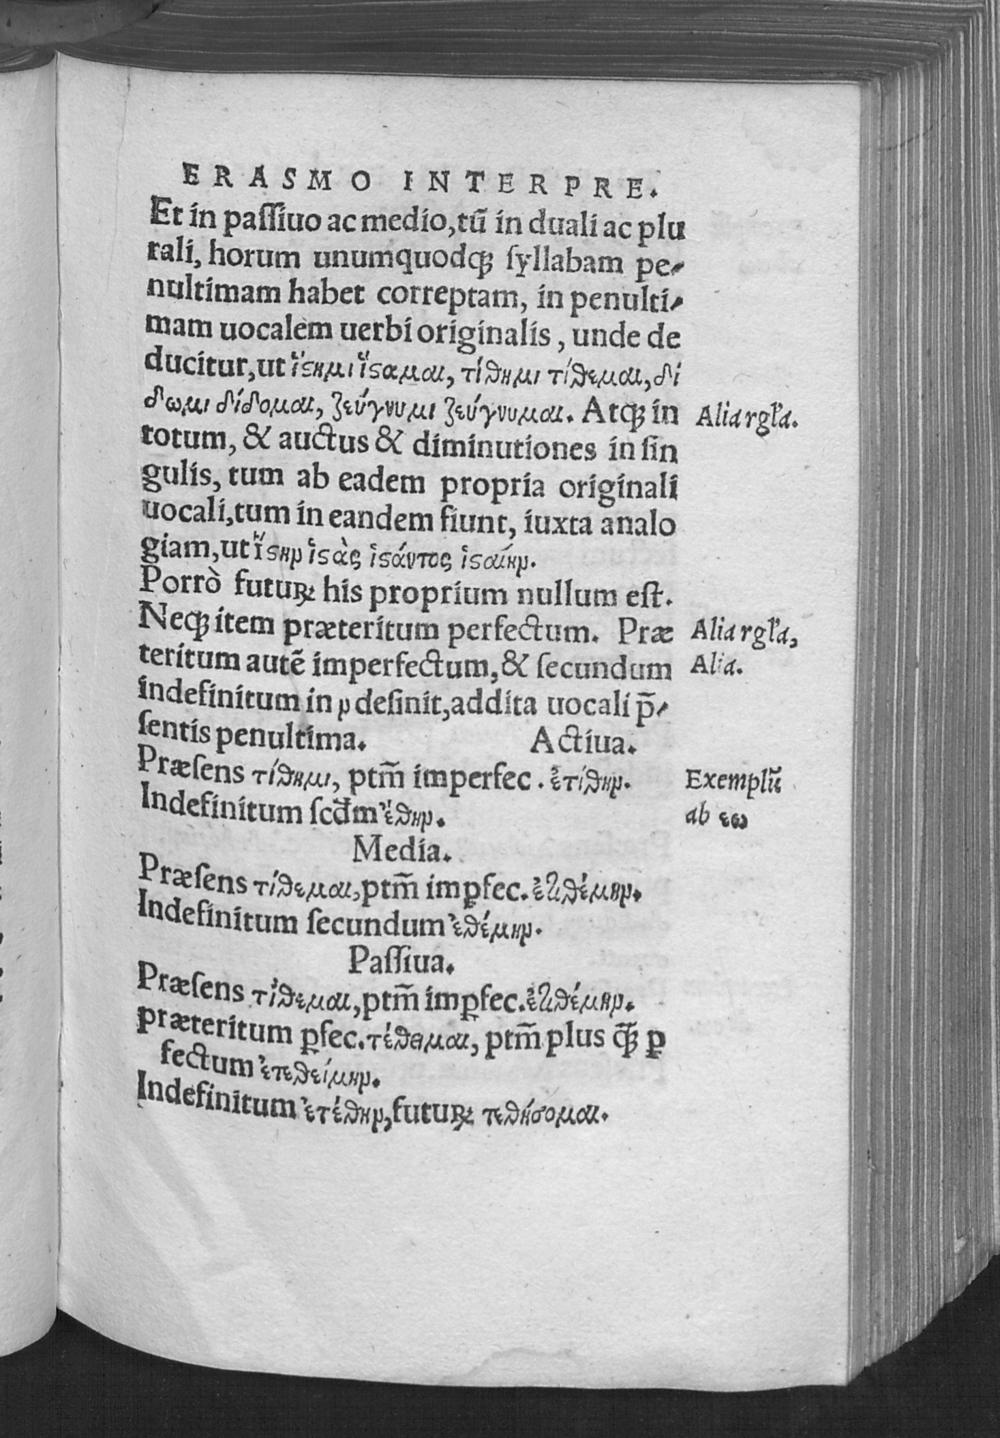 ERASMO INTERPRE.
Et in paſſiuo ac medio, tũ in duali ac plu
rali, horum unumquodq; ſyllabam pe-
nultimam habet correptam, in penulti-
mam uocalem uerbi originalis, unde de
ducitur, ut ἵϛημι ἵϛαμαι, τίθημι τίθεμαι, δί
δωμι δίδομαι, ζεύγνυμι ζεύγνυμαι. Atq; in
Alia rgl'a.
totum, & auctus & diminutiones in ſin
gulis, tum ab eadem propria originali
uocali, tum in eandem fiunt, iuxta analo
giam, ut ἵϛην ἱϛὰς ἱϛάντος ἱϛαίην.
Porrò futuꝝ his proprium nullum eſt.
Neq; item præteritum perfectum. Præ
Alia rgl'a,
teritum autẽ imperfectum, & ſecundum
Alia.
indefinitum in ν deſinit, addita uocali p̃-
ſentis penultima. Actiua.
Præſens τίθημι, ptm̃ imperfec. ἐτίθην.
Exemplũ
Indefinitum ſcd̃m ἔθην.
ab εω
Media.
Præſens τίθεμαι, ptm̃ imꝑfec. ἐτιθέμην.
Indefinitum ſecundum ἐθέμην.
Paſſiua.
Præſens τίθεμαι, ptm̃ imꝑfec. ἐτιθέμην.
præteritum ꝑfec. τέθειμαι, ptm̃ plus q̃; ꝑ
fectum ἐτεθείμην.
Indefinitum ἐτέθην, futuꝝ τεθήσομαι.